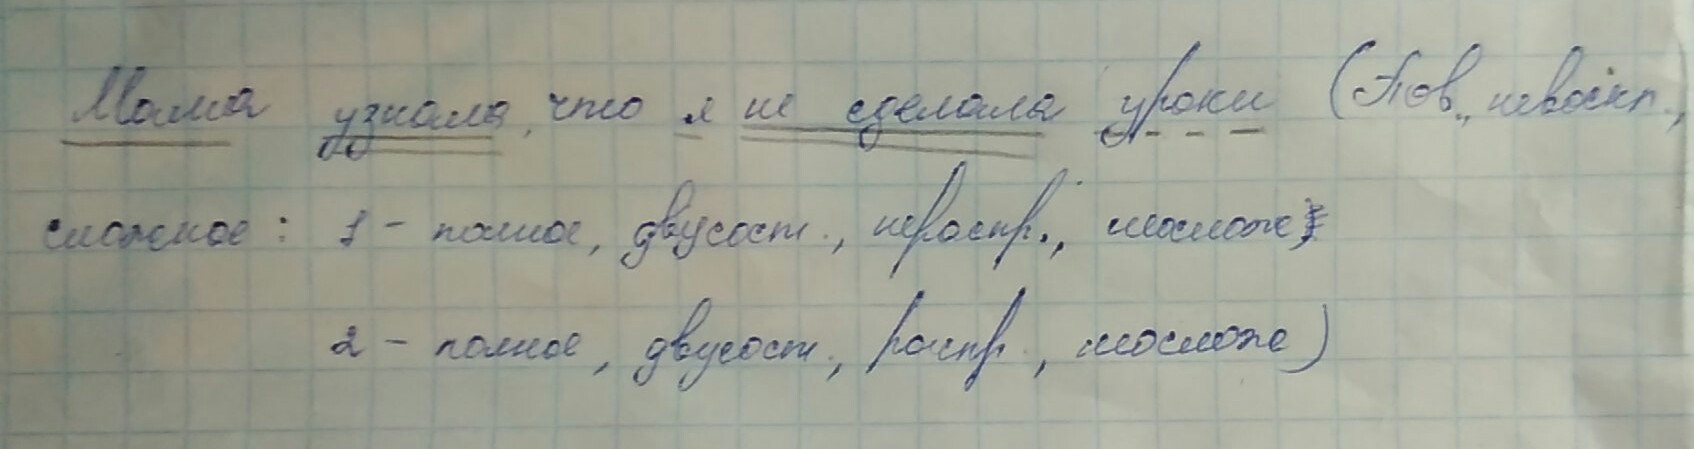 Мама узнала, что я не сделала уроки (Пов., невоскл.,
сложное: 1 - полное, двусост., нераспр., неослож;
2 - полное, двусост., распр., неослож)